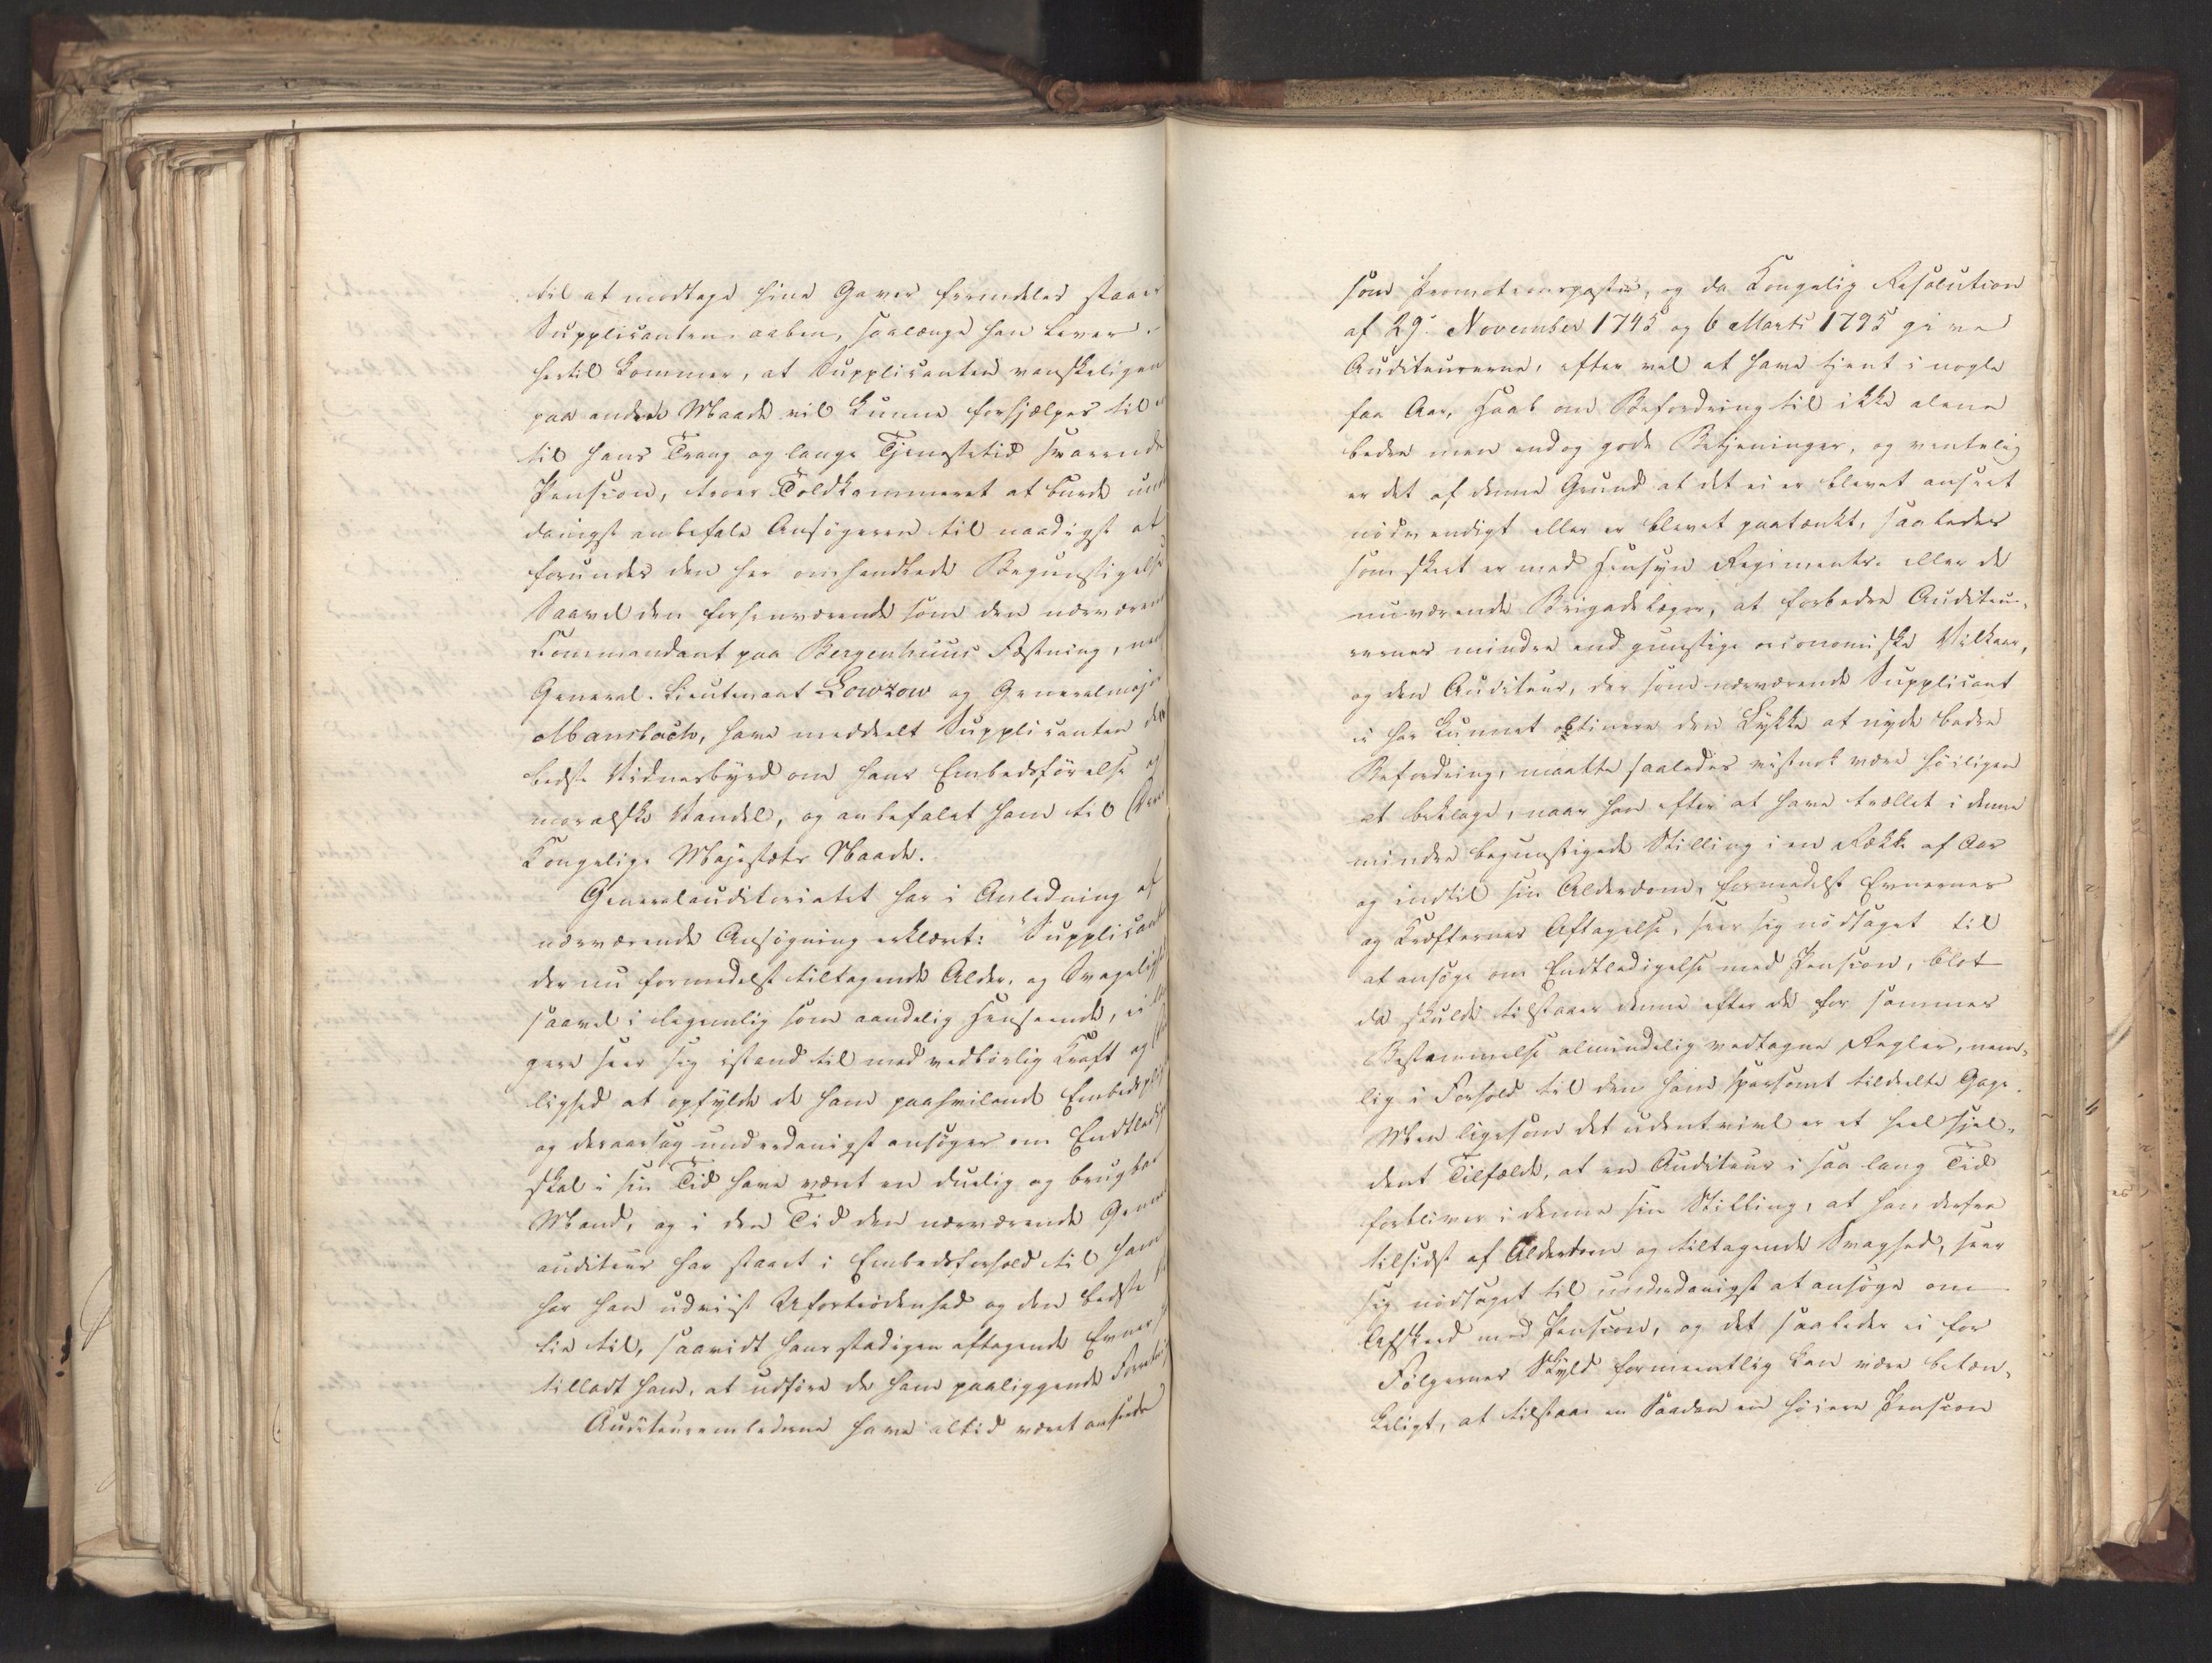 til at modtage hine Gaver fremdeles staaer
Supplicanten aaben, saalænge han lever.
hertil kommer, at Supplicanten vanskeligen
paa anden Maade vil kunne forhjælpes til
til hans Trang og lange Tjenestetid svarende
Pension, troer Toldkammeret at burde un
danigst anbefale Ansøgeren til naadigst at
forundes den her omhandlede Begunstigelse
Saavel den forhenværende som den nærværen
Commandant paa Bergenhuus Fæstning,
General-Lieutenant Lowzow og Generalmajo
Mansbach, have meddeelt Supplicanten de
bedste Vidnesbyrd om hans Embedsførelse og
moralske Vandel, og anbefalet ham til Der
Kongelige Majestæts Naade.
Generalauditoriatet har i Anledning af
nærværende Ansøgning erklært: "Supplican
der nu formedelst tiltagende Alder, og Svagelig
saavel i legemlig som aandelig Henseende, ei
gere seer sig istand til med vedbørlig Kraft og
lighed at opfylde de ham paahvilende Embeds
og deraarsag underdanigst ansøger om Entled
skal i sin Tid have været en duelig og brugbar
Mand, og i den Tid den nærværende Gene
auditeur har staaet i Embedsforhold til ham
har han udviist Ufortrødenhed og den bedste
lie til, saavidt hans stadigen aftagende Evner
tilladt ham, at udføre de ham paaliggende
Auditeurembederne have altid været anseete
som Promotionsposter, og da Kongelig Resolution
af 29. November 1745 og 6 Marts 1795 give
Auditeurerne, efter vel at have tjent i nogle
faa Aar, Haab om Befordring til ikke alene
bedre men endog gode Betjeninger, og ventelig
er det af denne Grund at det ei er blevet anseet
nødvendigt eller er blevet paatænkt, saaledes
som skeet er med Hensyn Regiments- eller de
nuværende Brigadelæger, at forbedre Auditeu-
rernes mindre end gunstige oeconomiske Vilkaar,
og den Auditeur, der som nærværende Supplicant
ei har kunnet obtinere den Lykke at nyde bedre
Befordring, maatte saaledes vistnok være høiligen
at beklage, naar han efter at have trællet i denne
mindre begunstigede Stilling i en Række af Aar
og indtil sin Alderdom, formedelst Evnernes
og Kræfternes Aftagelse, seer sig nødsaget til
at ansøge om Entledigelse med Pension, blot
da skulde tilstaaes denne efter de for sammes
Bestemmelse almindelig vedtagne Regler, nem-
lig i Forhold til den ham sparsomt tildeelte Gage.
Men ligesom det udentvivl er et heel sjel-
dent Tilfælde, at en Auditeur i saa lang Tid
forbliver i denne sin Stilling, at han derfra
tilsidst af Alderdom og tiltagende Svaghed, seer
sig nødsaget til underdanigst at ansøge om
Afskeed med Pension, og det saaledes ei for
Følgernes Skyld formeentlig kan være betæn-
keligt, at tilstaae en Saadan en høiere Pension